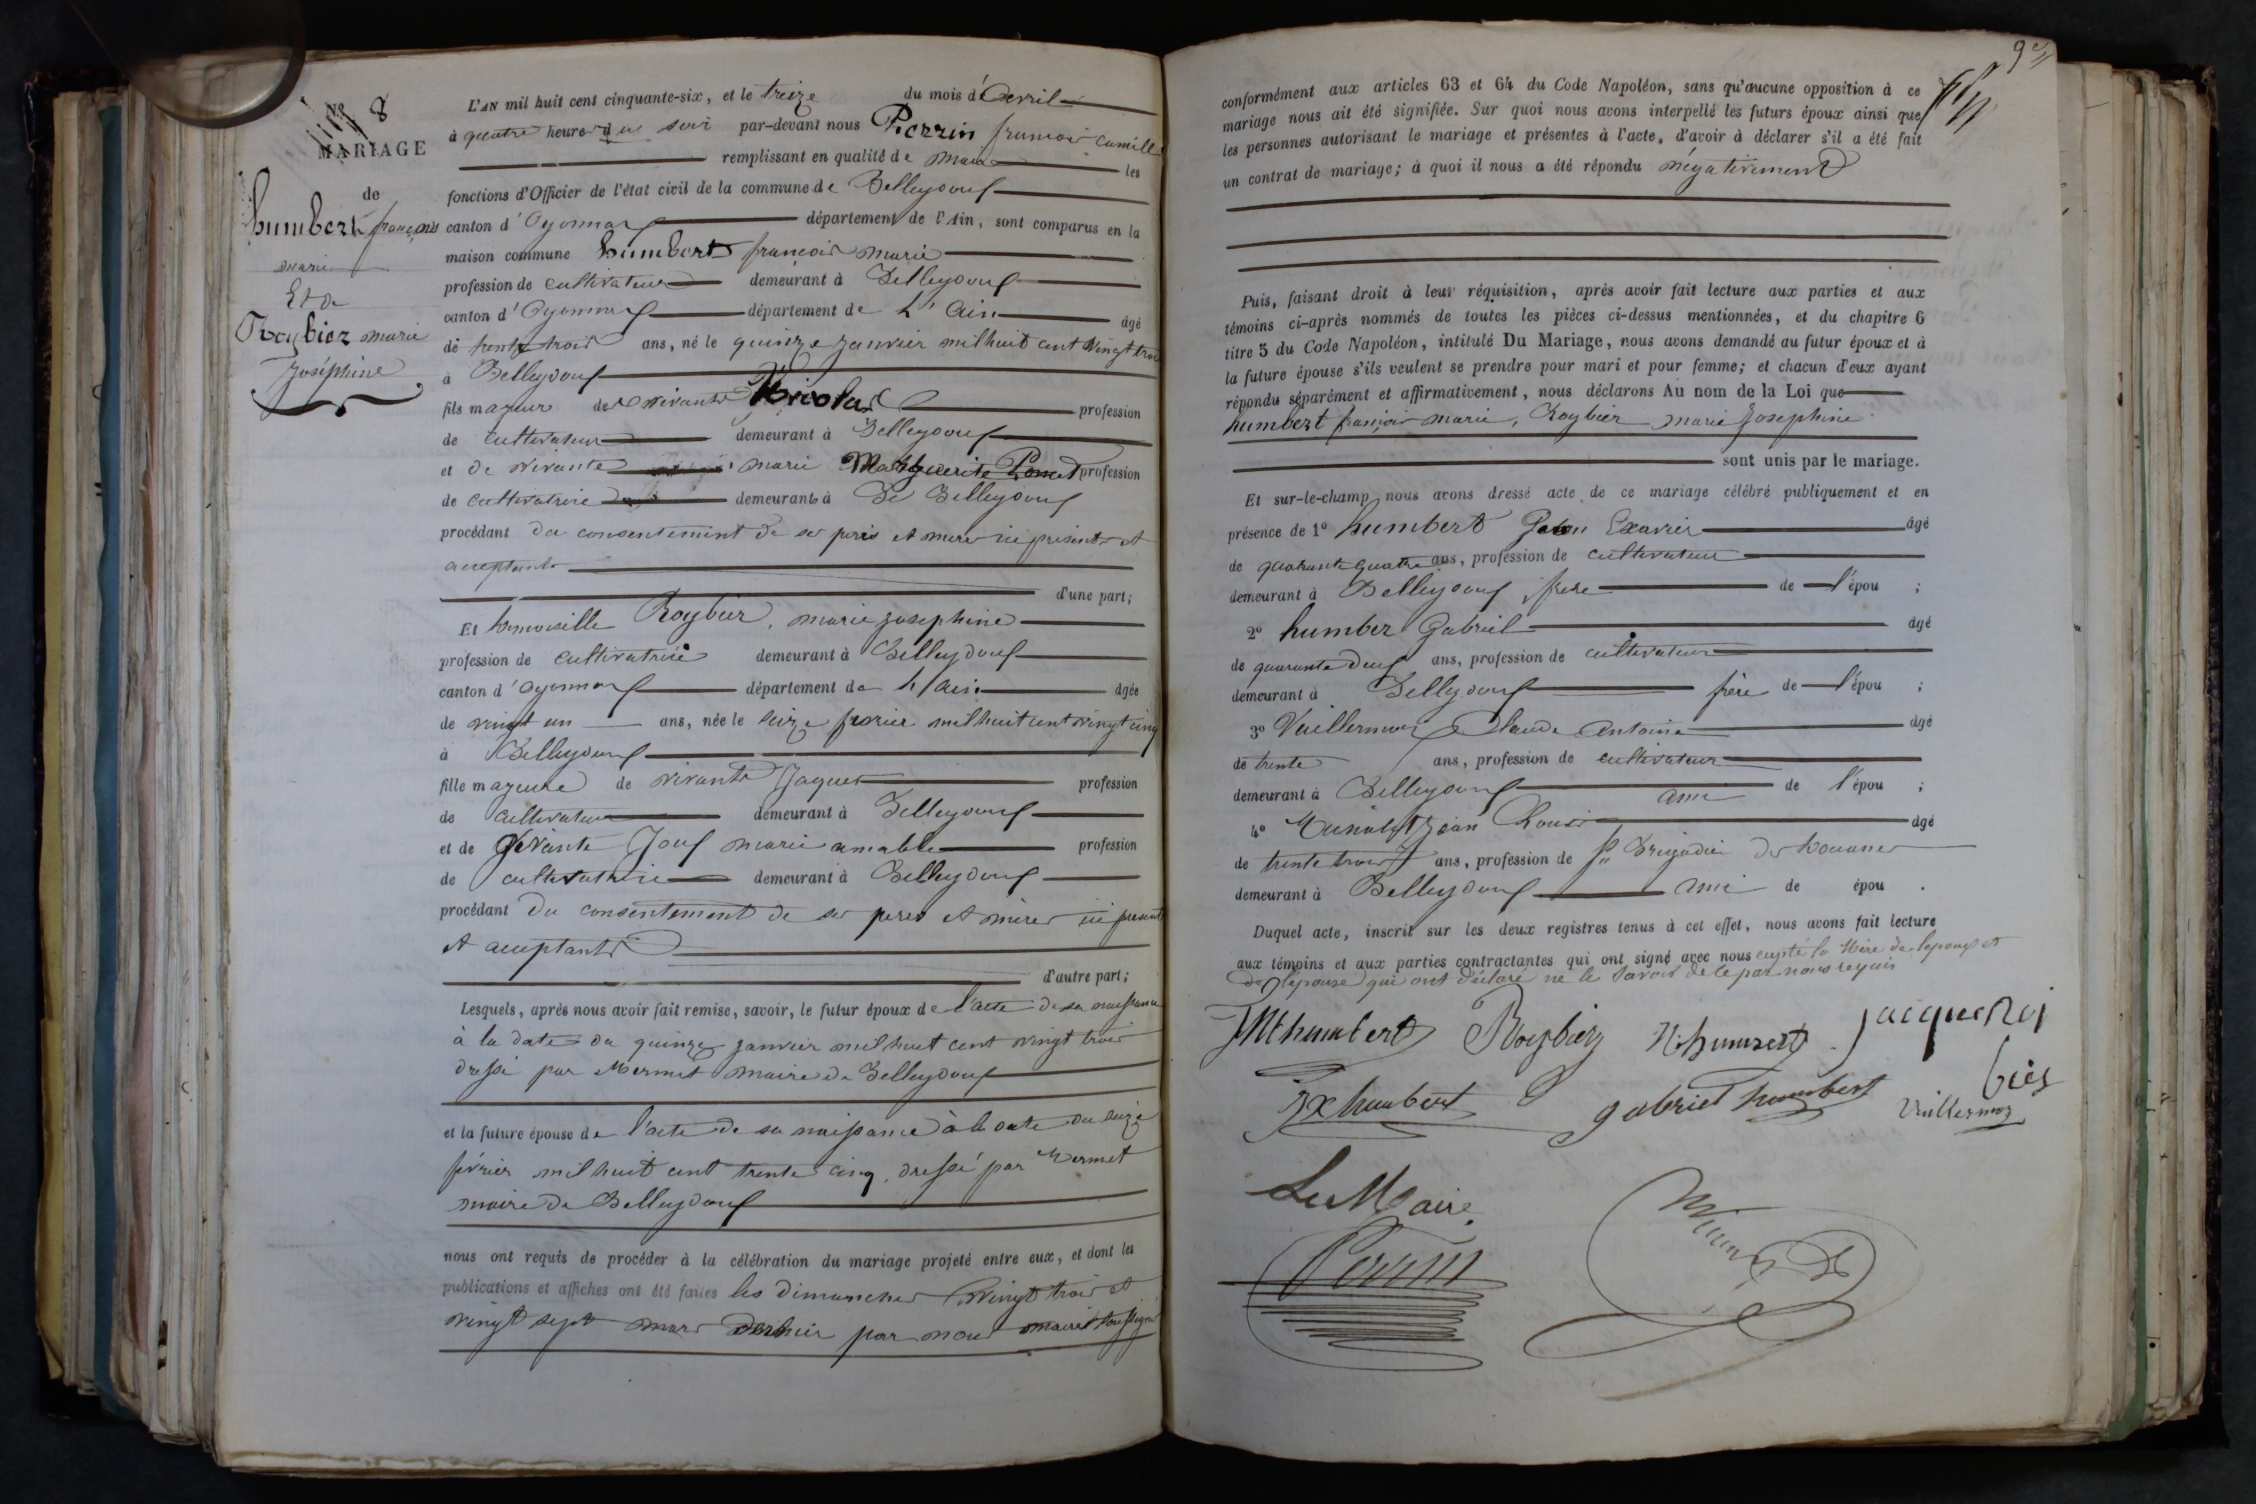 N° 8
MARIAGE
de
humbert françois
marie
Et de
Roybier marie
Joséphine
L'AN mil huit cent cinquante-six, et le treize du mois d'Avril
à quatre heures du soir par-devant nous Perrin françois camille
remplissant en qualité de maire les
fonctions d'Officier de l'état civil de la commune de Belleydoux
canton d'Oyonnax département de l'Ain, sont comparus en la
maison commune humbert françois marie
profession de cultivateur demeurant à Belleydoux
canton d'Oyonnax département de L'Ain âgé
de trente trois ans, né le quinze janvier mil huit cent vingt trois
à Belleydoux
fils majeur de vivants Nicolas profession
de cultivateur demeurant à Belleydoux
et de vivante marie Marguerite Poncet profession
de cultivatrice demeurants à De Belleydoux
procédant du consentement de ses peres et meres ici présents et
acceptants
d'une part;
Et demoiselle Roybier, marie josephine
profession de cultivatrice demeurant à Belleydoux
canton d'Oyonnax département de L'Ain âgée
de vingt un ans, née le seize fevrier mil huit cent vingt cinq
à Belleydoux
fille majeure de vivants Jaques profession
de cultivateur demeurant à Belleydoux
et de vivante Joux marie amable profession
de cultivatrice demeurant à Belleydoux
procédant Du consentement de ses peres et mères ici present
et acceptants
d'autre part;
Lesquels, après nous avoir fait remise, savoir, le futur époux de l'acte de sa naissance
à la date du quinze janvier mil huit cent vingt trois
dressé par Mermet maire de Belleydoux
et la future épouse de l'acte de sa naissance à la date du seize
février mil huit cent trente cinq, dressé par Mermet
maire de Belleydoux
nous ont requis de procéder à la célébration du mariage projeté entre eux, et dont les
publications et affiches ont été faites les dimanches vingt trois et
vingt sept mars dernier par nous maire soussigné
9
conformément aux articles 63 et 64 du Code Napoléon, sans qu'aucune opposition à ce
mariage nous ait été signifiée. Sur quoi nous avons interpellé les futurs époux ainsi que
les personnes autorisant le mariage et présentes à l'acte, d'avoir à déclarer s'il a été fait
un contrat de mariage; à quoi il nous a été répondu négativement
Puis, faisant droit à leur réquisition, après avoir fait lecture aux parties et aux
témoins ci-après nommés de toutes les pièces ci-dessus mentionnées, et du chapitre 6
titre 5 du Code Napoléon, intitulé Du Mariage, nous avons demandé au futur époux et à
la future épouse s'ils veulent se prendre pour mari et pour femme; et chacun d'eux ayant
répondu séparément et affirmativement, nous déclarons Au nom de la Loi que
humbert françois marie, Roybier marie Josephine
sont unis par le mariage.
Et sur-le-champ nous avons dressé acte de ce mariage célébré publiquement et en
présence de 1° humbert Exavier âgé
de quarante quatre ans, profession de cultivateur
demeurant à Belleydoux frere de l'épou ;
2° humber Gabriel âgé
de quarante deux ans, profession de cultivateur
demeurant à Belleydoux frère de l'épou ;
3° Vuillermoz Claude Antoine âgé
de trente ans, profession de cultivateur
demeurant à Belleydoux ami de l'épou ;
4° jean Louis âgé
de trente trois ans, profession de Brigadier des Douanes
demeurant à Belleydoux ami de épou .
Duquel acte, inscrit sur les deux registres tenus à cet effet, nous avons fait lecture
aux témoins et aux parties contractantes qui ont signé avec nous cepté la Mère de lepoux et
de l'épouse qui ont déclaré ne le savoir de ce par nous requis
JM humbert Roybier N humbert jacque Roi
bier
J x humbert gabriel humbert Vuillermoz
Le Maire
Perrin